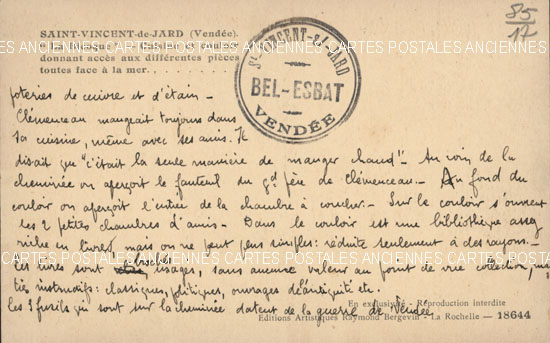 85
17
SAINT-VINCENT-de-JARD (Vendée).
donnant accès aux différentes pièces
toutes face à la mer
St VINCENT-s/-JARD
BEL-ESBAT
VENDÉE
ANCIENNES CARTES POSTALES ANCIENNES CARTES POSTALES ANCIENNES
poteries de cuivre et d'étain -
Clémenceau mangeait toujours dans
sa cuisine, même avec ses amis. Il
disait que "c'était la seule manière de manger chaud" - Au coin de la
cheminée on aperçoit le fauteuil du gd père de Clémenceau. - Au fond du
couloir on aperçoit l'entrée de la chambre à coucher - Sur le couloir s'ouvrent
les 2 petites chambres d'amis - Dans le couloir est une bibliothèque assez
riche en livres, mais on ne peut plus simples : réduite seulement à des rayons -
Les livres sont usagés, sans aucune valeur au point de vue collection, mais
très instructifs : classiques, politiques, ouvrages d'antiquité etc.
les 3 fusils qui sont sur la cheminée datent de la guerre de Vendée
En exclusivité - Reproduction interdite
Editions Artistiques Raymond Bergevin - La Rochelle - 18644